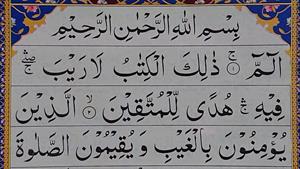 بِسْمِ اللهِ الرَّحْمٰنِ الرَّحِيْمِ
الٓمّٓ ۚ﴿۱﴾ ذٰلِكَ الْكِتٰبُ لَا رَيْبَ ۛۖۚ
فِيْهِ ۛۚ هُدًى لِّلْمُتَّقِيْنَ ﴿۲﴾ الَّذِيْنَ
يُؤْمِنُوْنَ بِالْغَيْبِ وَ يُقِيْمُوْنَ الصَّلٰوةَ